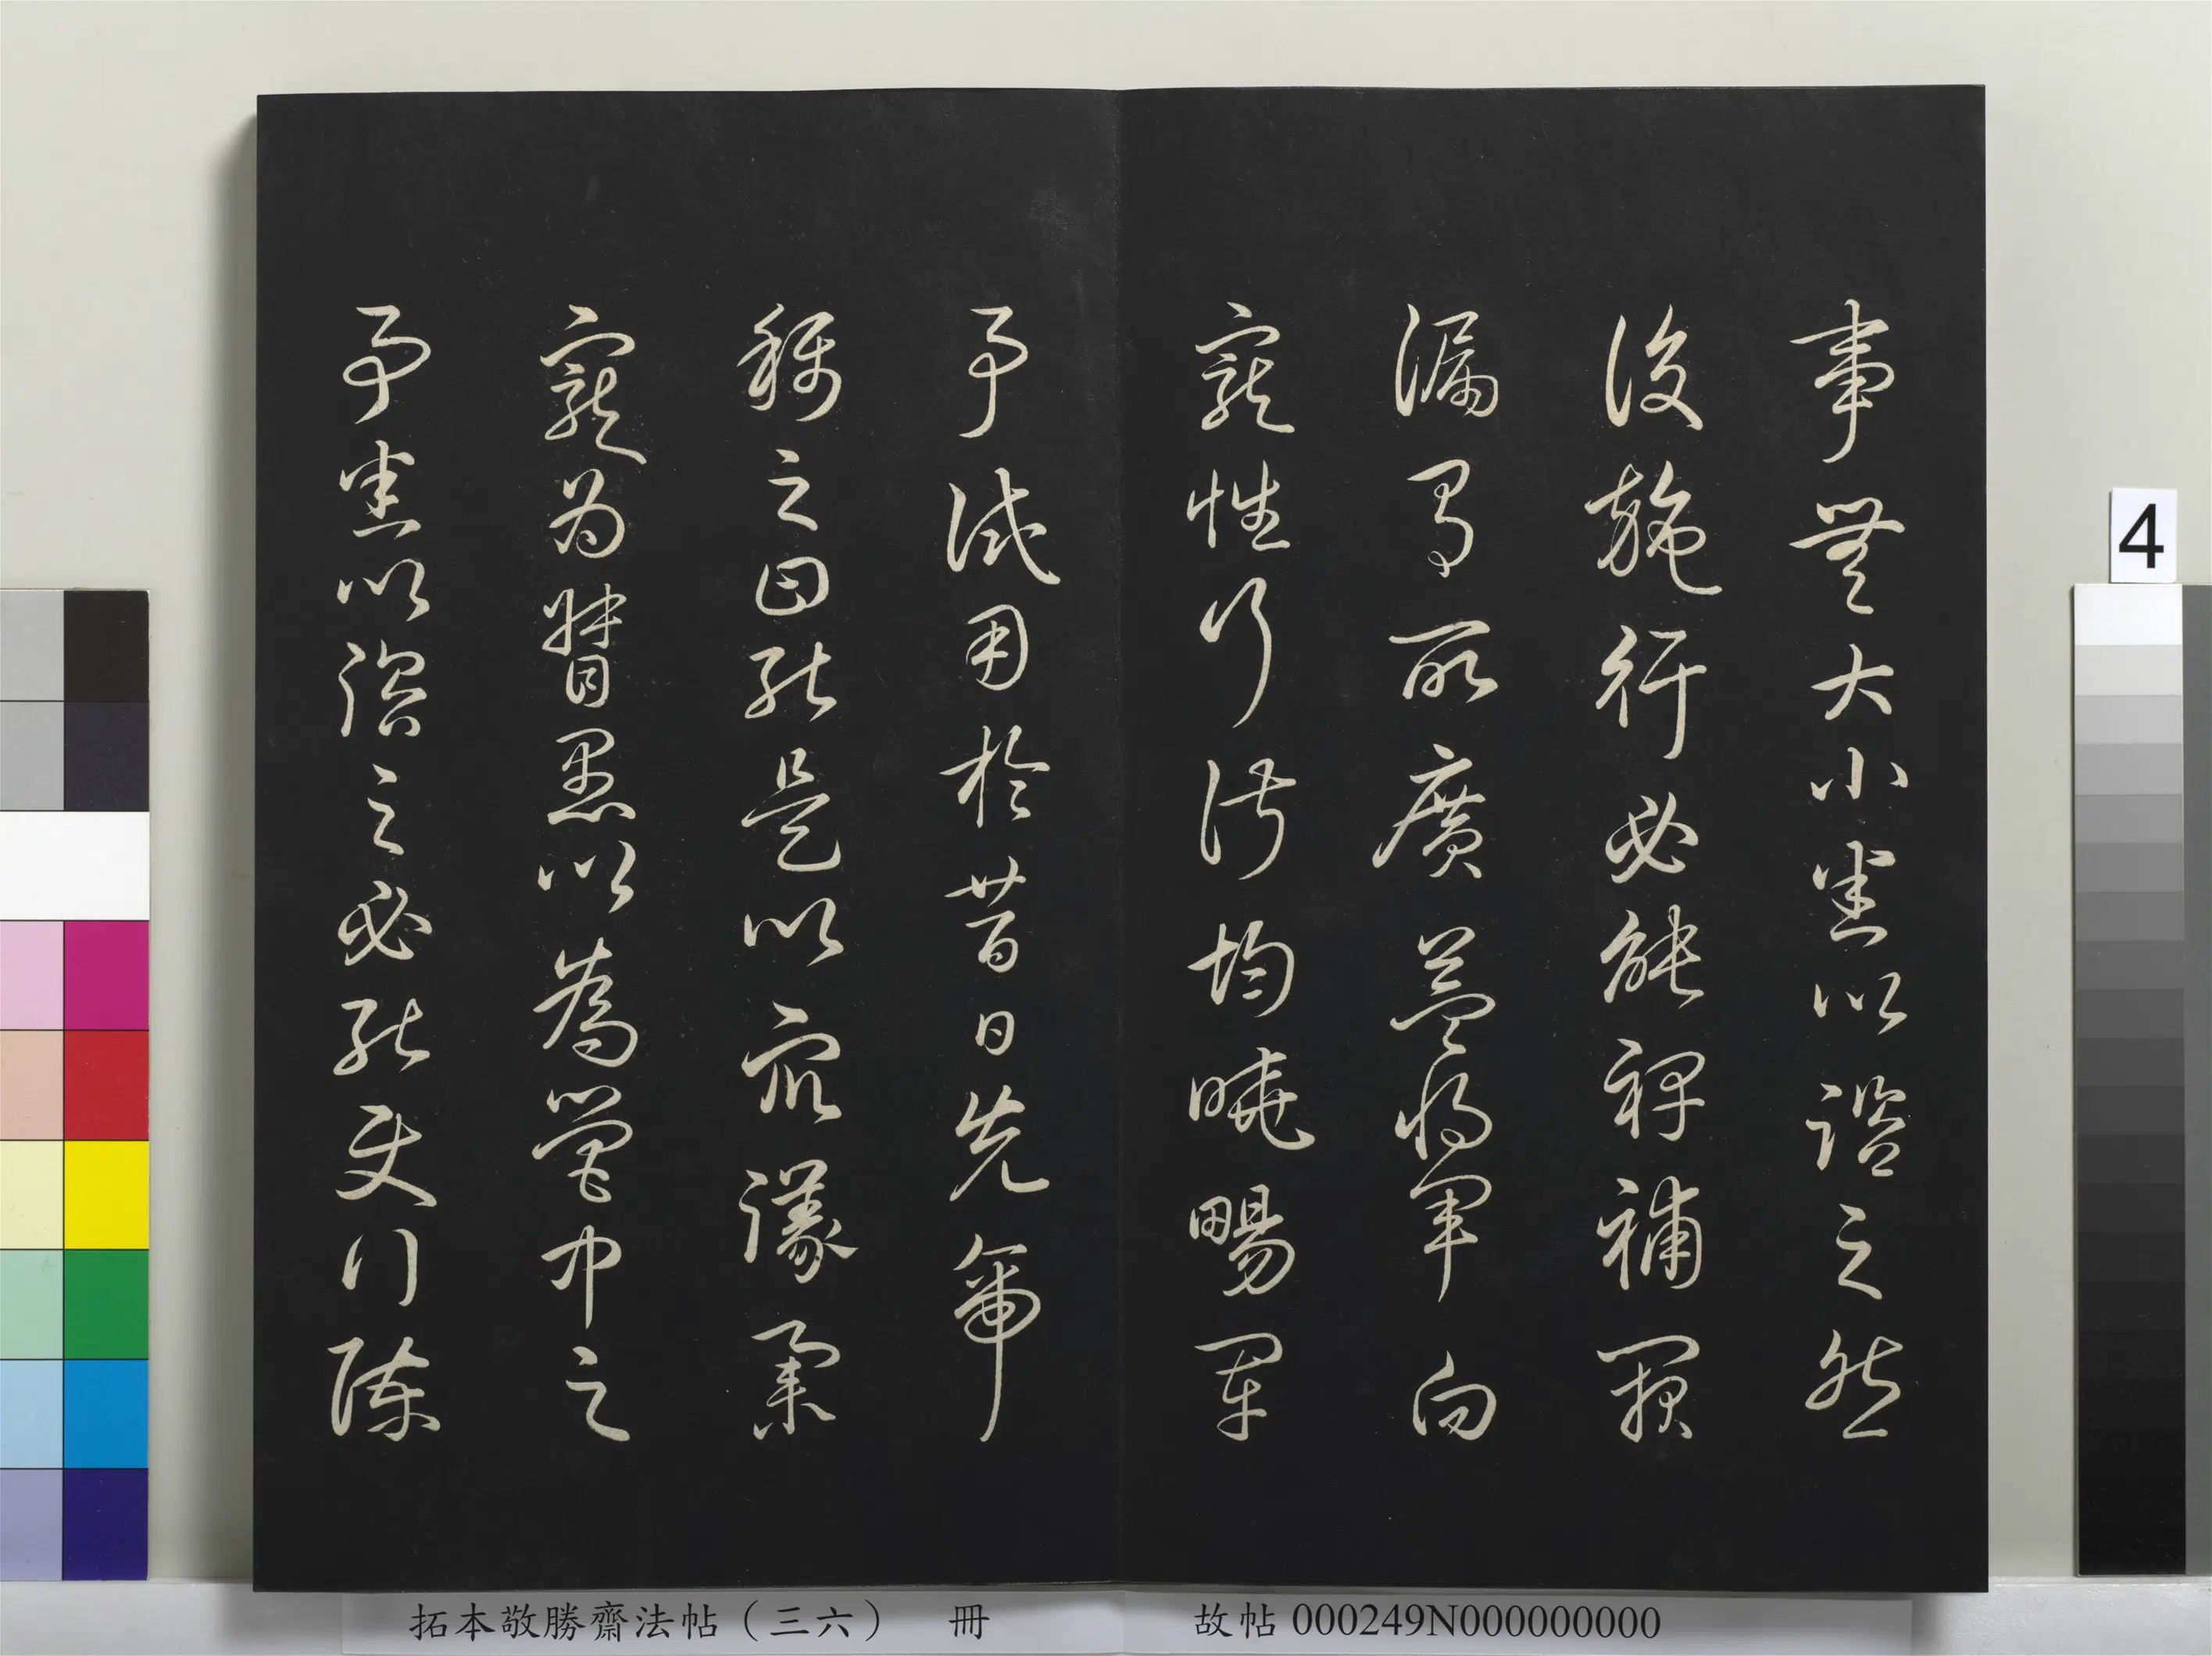 事無大小悉以諮之然
後施行必能裨補闕
漏有所廣益將軍向
寵性行淑均曉暢軍
事試用於昔日先帝
稱之曰能是以眾議舉
寵為督愚以為營中之
事悉以諮之必能使行陳
拓本敬勝齋法帖（三六） 冊 故帖000249N000000000
4